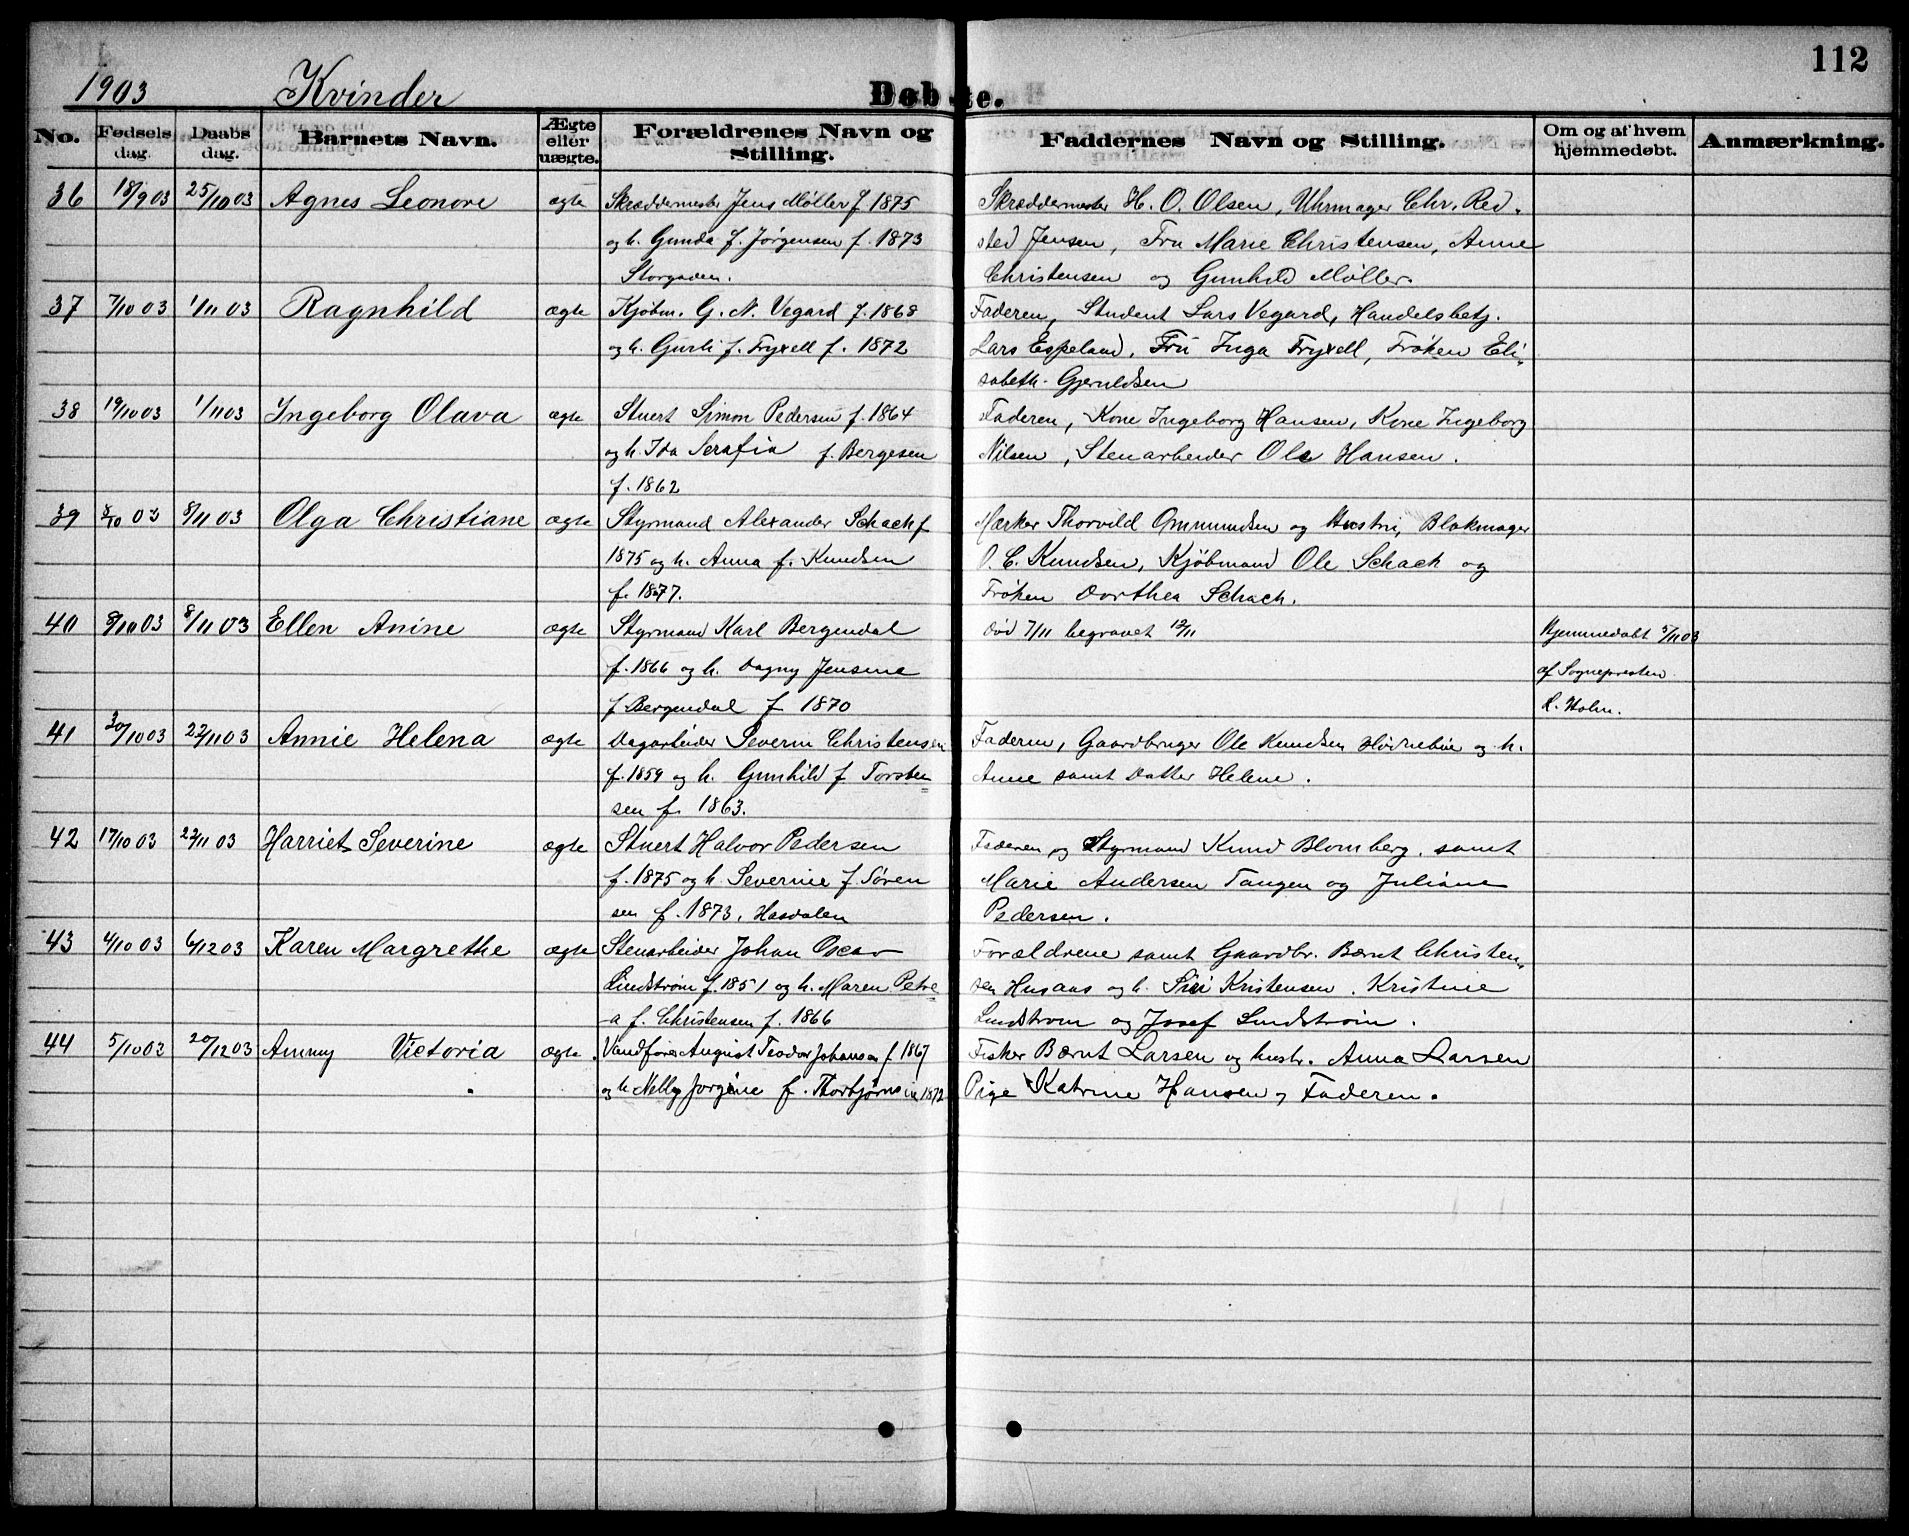 112
1903 Kvinder Døbte.
No. Fødsels dag. Daabs dag. Barnets Navn. Ægte eller uægte. Forældrenes Navn og Stilling. Faddernes Navn og Stilling. Om og af hvem hjemmedøbt. Anmærkning.
36 18/9 03 25/10 03 Agnes Leonore ægte Skræddermester Jens Møller f. 1875 Skræddermester H. O. Olsen, Uhrmager Chr. Red-
og h. Gunda f. Jørgensen f. 1873 sted Jensen, Fru Marie Christensen, Anne
Storgaden. Christensen og Gunhild Møller.
37 7/10 03 1/11 03 Ragnhild ægte Kjøbm. G. N. Vegard f. 1868 Faderen, Student Lars Vegard, Handelsbetj.
og h. Gurli f. Fryxell f. 1872 Lars Espeland, Fru Inga Fryxell, Frøken Eli-
sabeth Gjeruldsen
38 19/10 03 1/11 03 Ingeborg Olava ægte Stuert Simon Pedersen f. 1864 Faderen, Kone Ingeborg Hansen, Kone Ingeborg
og h. Ida Serafia f. Bergesen Nilsen, Stenarbeider Ole Hansen.
f. 1862
39 8/10 03 8/11 03 Olga Christiane ægte Styrmand Alexander Schach f Mærker Thorvild Ommundsen og Hustru, Blokmager
1875 og h. Anna f. Knudsen O. C. Knudsen, Kjøbmand Ole Schach og
f. 1877. Frøken Dorthea Schach.
40 8/10 03 8/11 03 Ellen Anine ægte Styrmand Karl Bergendal død 7/11 begravet 12/11 Hjemmedøbt 5/11 03
f. 1866 og h. Dagny Jensine af Sognepresten
f Bergendal f 1870 R. Holm.
41 30/10 03 22/11 03 Annie Helena ægte Dagarbeider Severin Christensen Faderen, Gaardbruger Ole Knudsen og h.
f. 1859 og h. Gunhild f Torsten Anne samt Datter Helene.
sen f. 1863.
42 17/10 03 22/11 03 Harriet Severine ægte Stuert Halvor Pedersen Faderen og Styrmand Knud Blomberg, samt
f. 1875 og h. Severine f Søren Marie Andersen Tangen og Juliane
sen f. 1873, Hasdalen Pedersen.
43 4/10 03 6/12 03 Karen Margrethe ægte Stenarbeider Johan Oscar Forældrene samt Gaardbr. Bernt Christen-
Lindstrøm f. 1851 og h. Maren Petre sen Husaas og h. Siri Kristensen, Kristine
a f. Christensen f. 1866 Lindstrøm og Josef Lindstrøm.
44 5/10 03 20/12 03 Ammy Victoria ægte. Vandfører August Teodor Johansen f 1867 Fisker Bernt Larsen og hustr. Anna Larsen
og h Nelly Jorgine f. Thorbjørnsen 1872 Pige Katrine Hansen og Faderen.